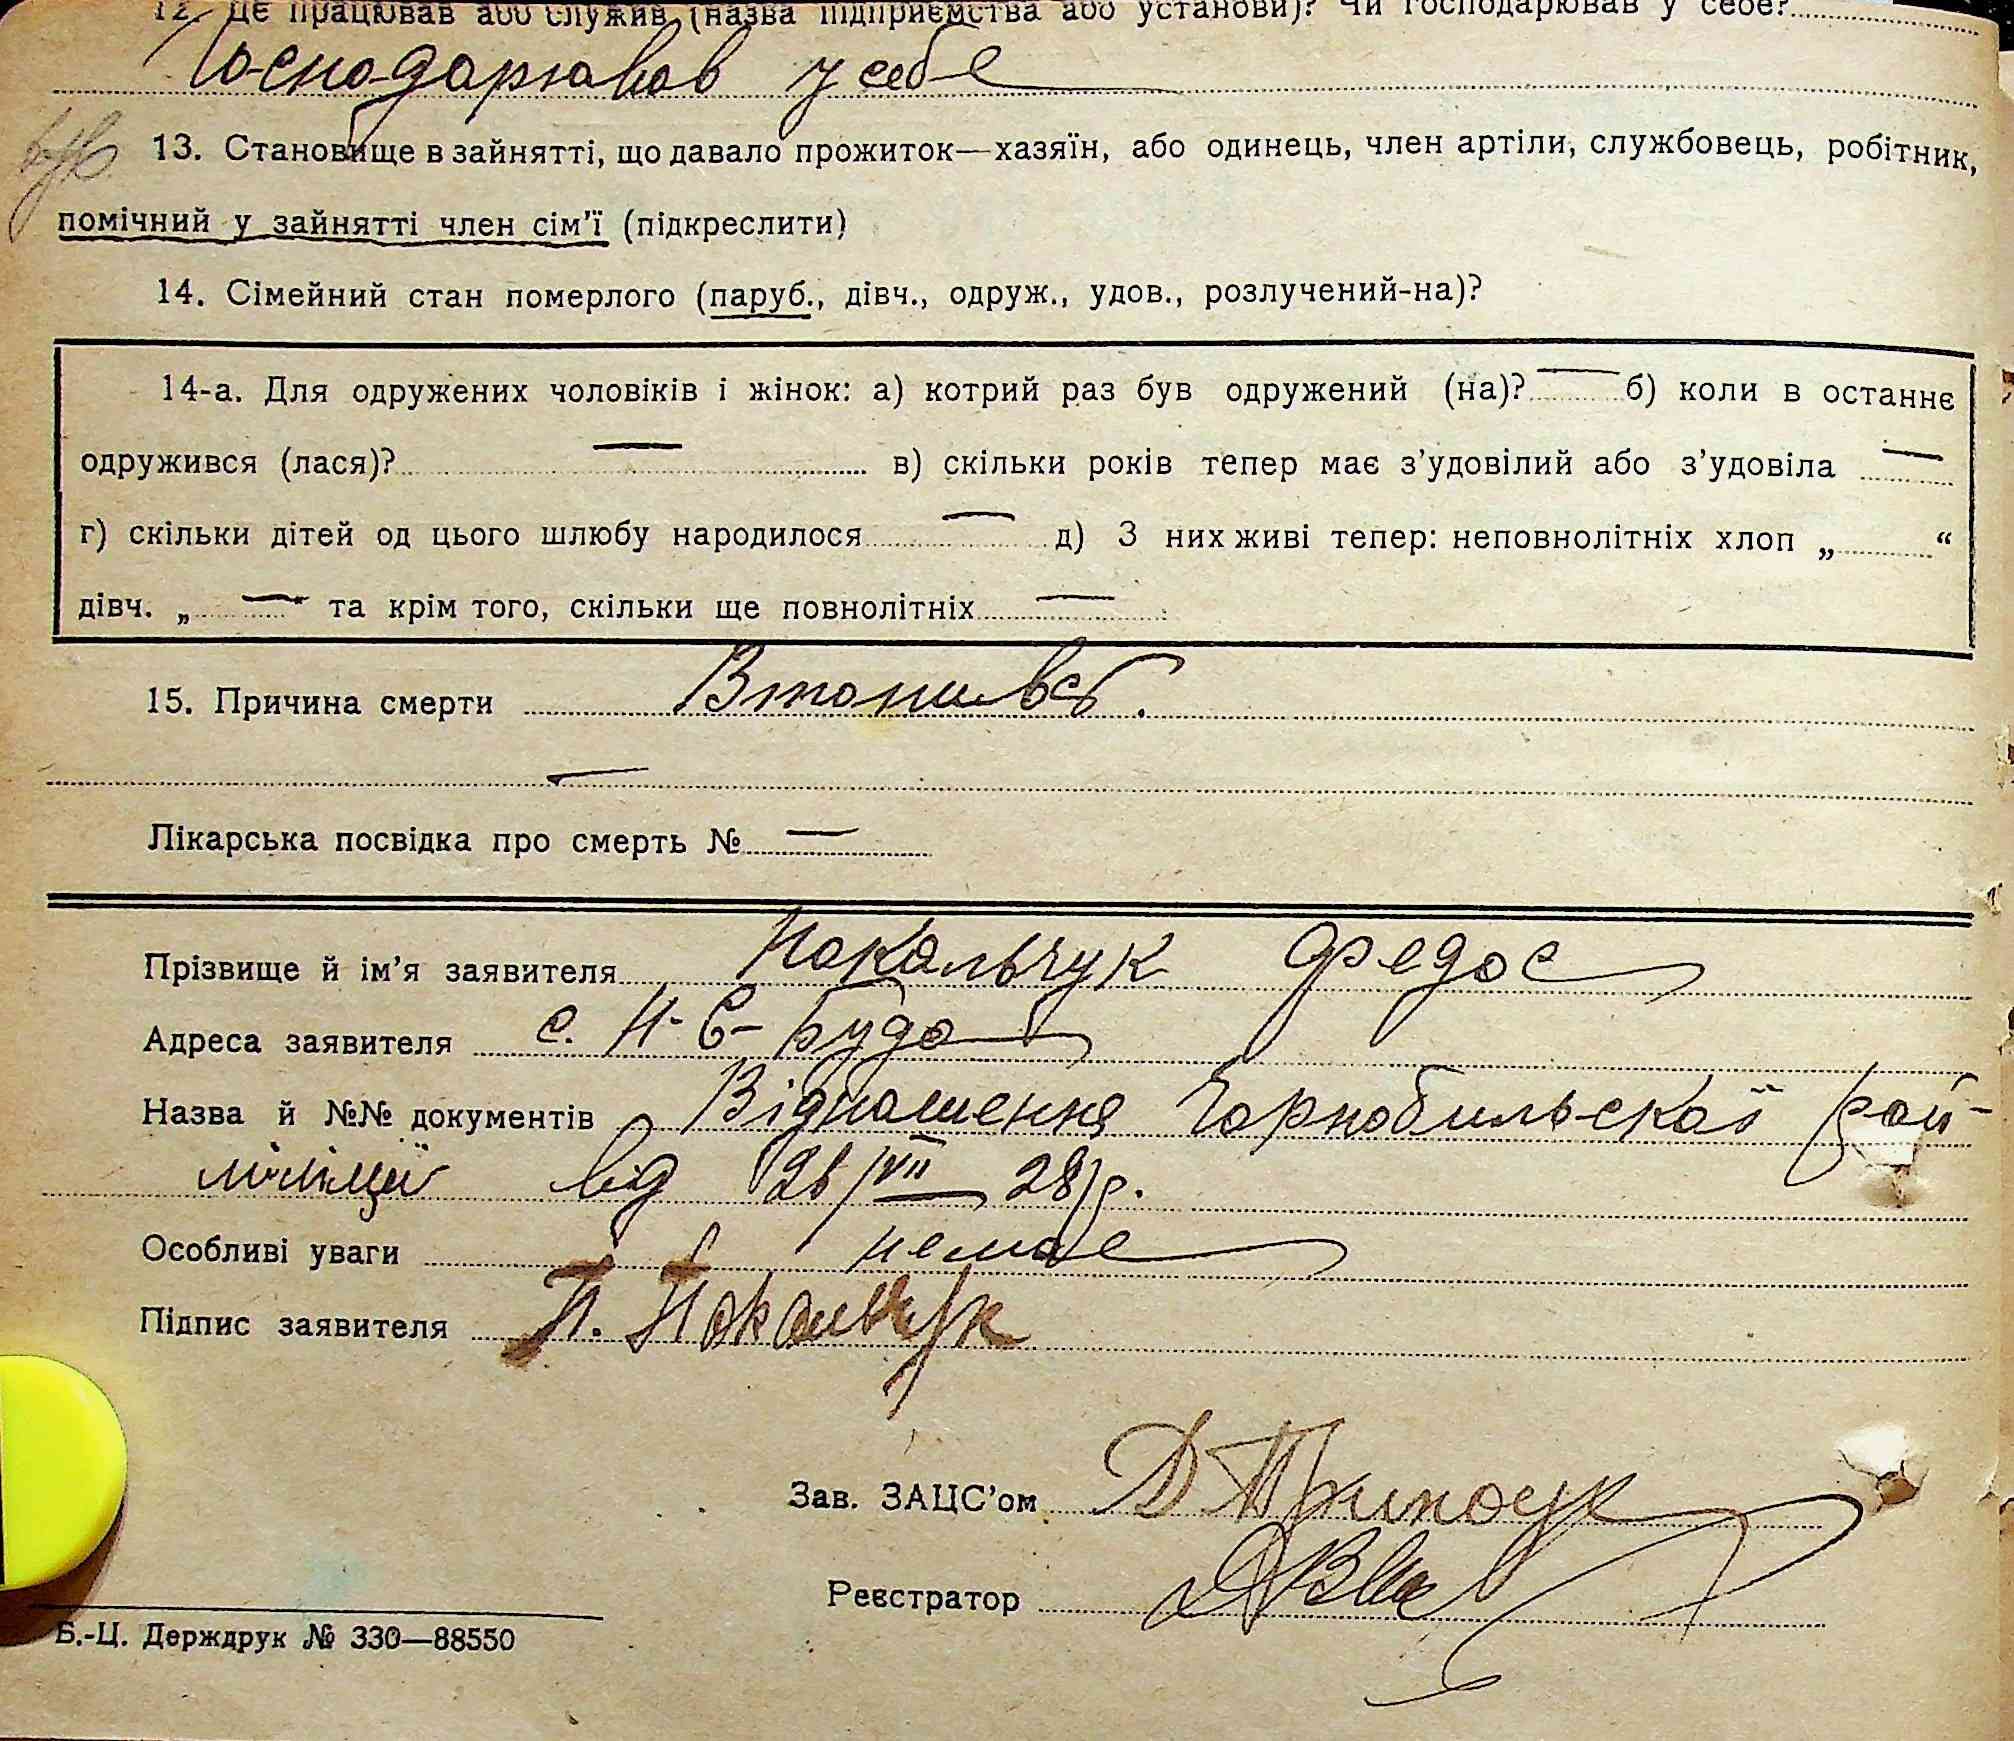 12. Де працював або служив (назва підприємства або установи)? Чи господарював у себе?
Господарював у себе
13. Становище в зайнятті, що давало прожиток—хазяїн, або одинець, член артіли, службовець, робітник,
помічний у зайнятті член сім'ї (підкреслити)
14. Сімейний стан померлого (паруб., дівч., одруж., удов., розлучений-на)?
14-а. Для одружених чоловіків і жінок: а) котрий раз був одружений (на)? — б) коли в останнє
одружився (лася)? — в) скільки років тепер має з'удовілий або з'удовіла —
г) скільки дітей од цього шлюбу народилося — д) З них живі тепер: неповнолітніх хлоп „ “
дівч. „ — “ та крім того, скільки ще повнолітніх —
15. Причина смерти Втопивсь.
—
Лікарська посвідка про смерть № —
Прізвище й ім'я заявителя Покальчук Федос
Адреса заявителя с. Н-С-Буда
Назва й №№ документів Відношення Чорнобильскої рай-
міліції від 26/VII 28 р.
Особливі уваги немає
Підпис заявителя Покальчук
Зав. ЗАЦС'ом Д
Реєстратор
Б.-Ц. Держдрук № 330—88550